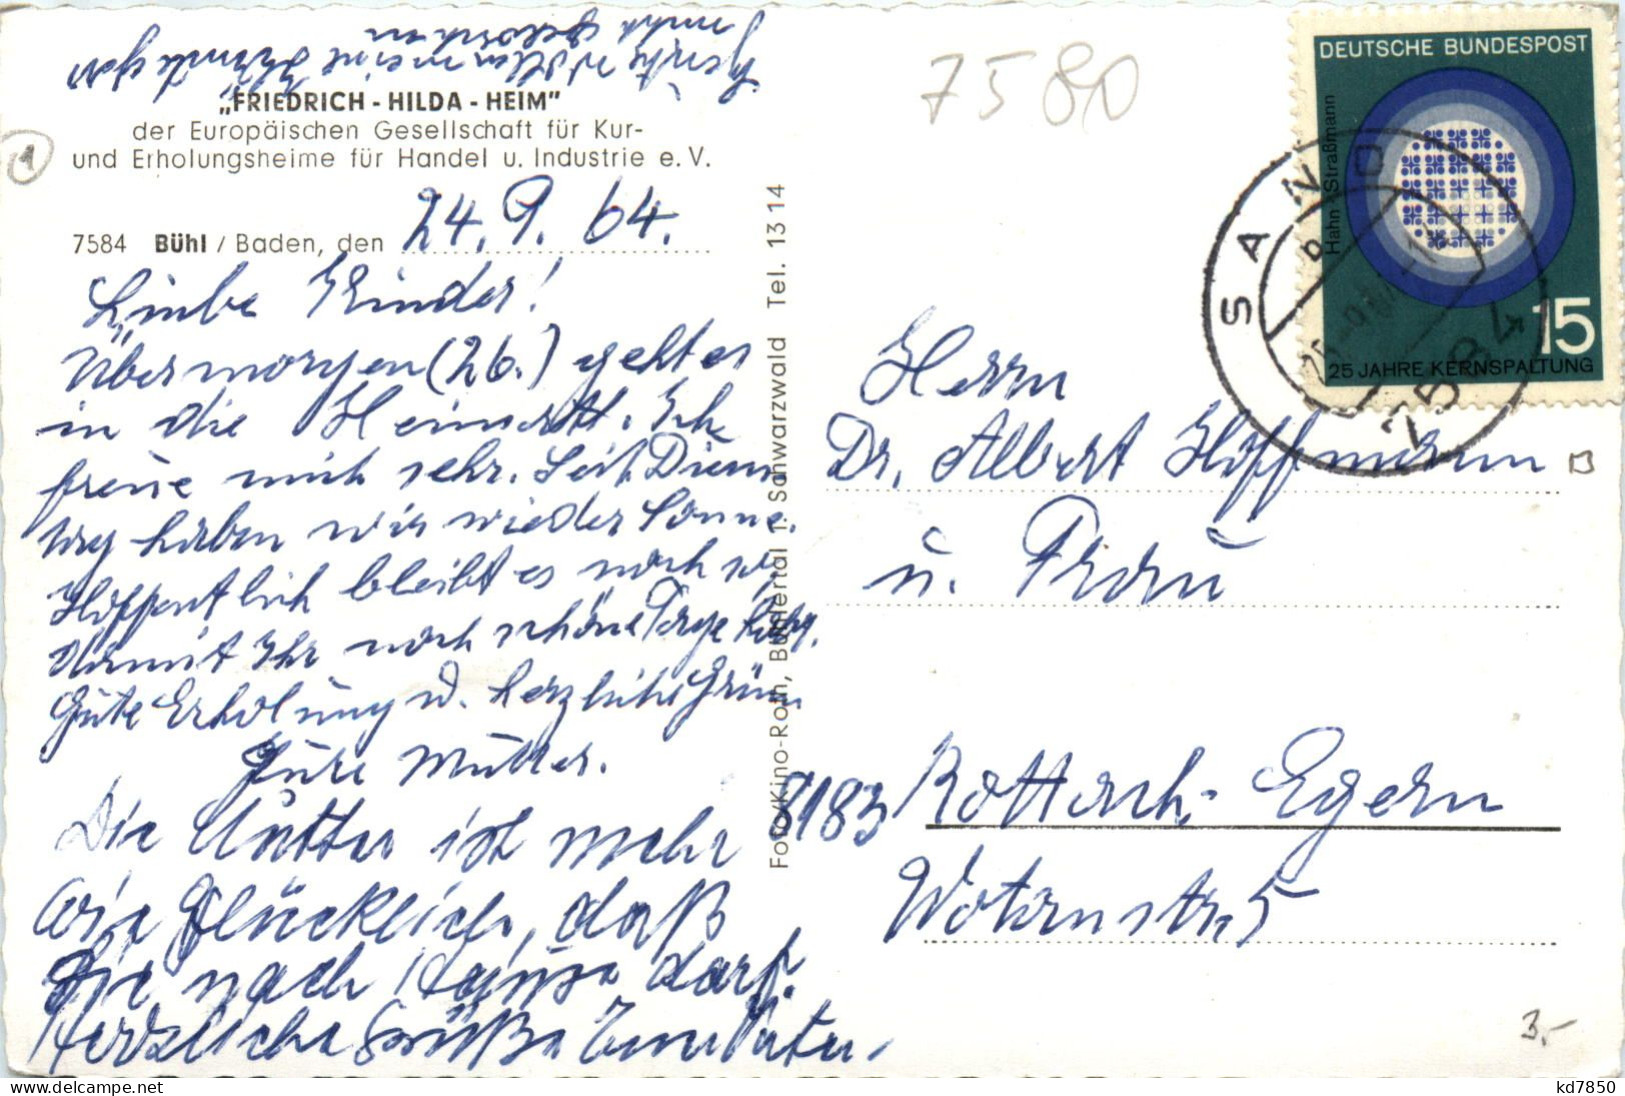 „FRIEDRICH - HILDA - HEIM"
der Europäischen Gesellschaft für Kur-
und Erholungsheime für Handel u. Industrie e. V.
1
7584 Bühl / Baden, den 24. 9. 64.
Liebe Kinder!
Übermorgen (26.) geht es
in die Heimat. Ich
freue mich sehr. Seit Diens
tag haben wir wieder Sonne.
Hoffentlich bleibt es noch so,
damit Ihr noch schöne Tage habt.
Gute Erholung u. herzliche Grüße
Eure Mutter.
Die Mutter ist mehr
wie glücklich, daß
sie nach Hause darf.
Herzliche Grüße Euer Vater.
Foto/Kino-Roth, Bühlertal 1. Schwarzwald Tel. 1314
7580
DEUTSCHE BUNDESPOST
Hahn Straßmann
15
25 JAHRE KERNSPALTUNG
SAND
7584
Herrn
Dr. Albert Hoffmann
u. Frau
8183 Rottach-Egern
Wotanstr. 5
3.-
kd7850